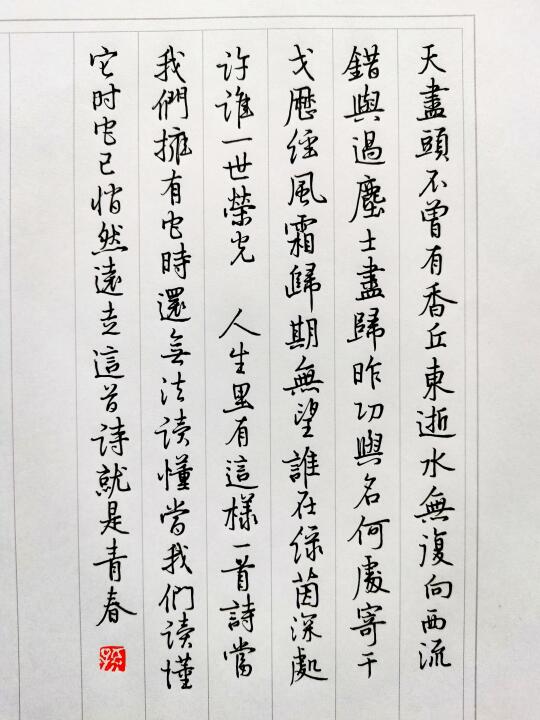 天盡頭不曾有香丘東逝水無復向西流
錯與過塵土盡歸昨功與名何處寄干
戈歷經風霜歸期無望誰在綠茵深處
许誰一世榮光 人生里有這樣一首詩當
我們擁有它時還無法读懂當我们读懂
它时它已悄然遠去這首诗就是青春